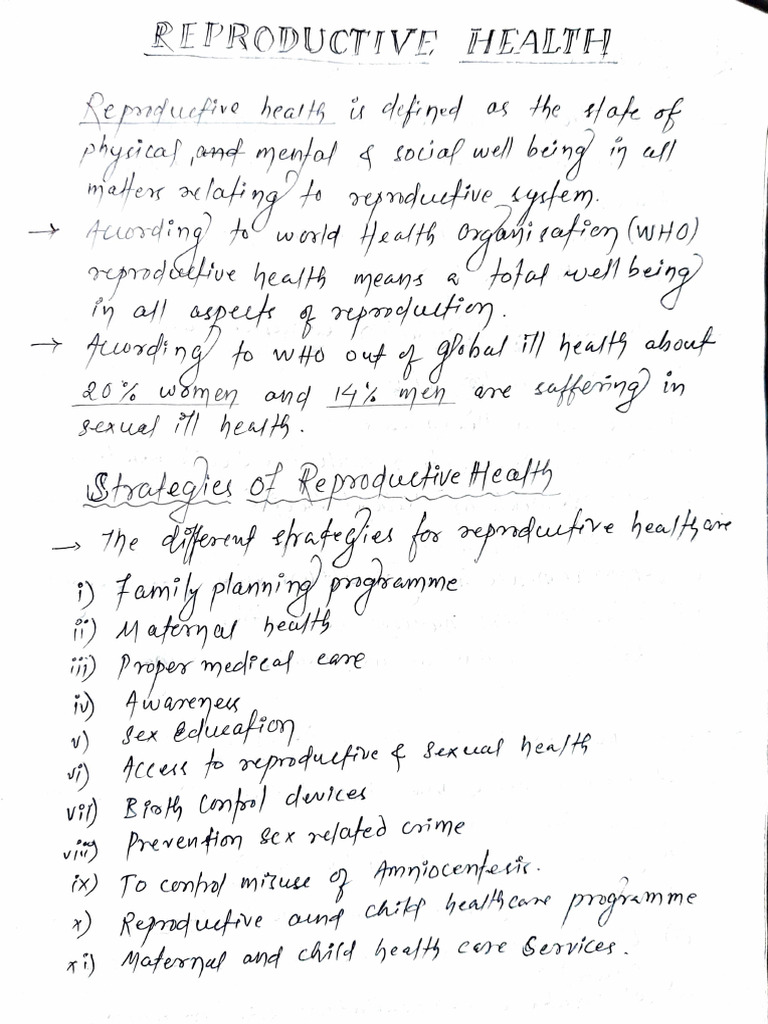 REPRODUCTIVE HEALTH
Reproductive health is defined as the state of
physical, and mental & social well being in all
matters relating to reproductive system.
→ According to world Health Organisation (WHO)
reproductive health means a total well being
in all aspects of reproduction.
→ According to WHO out of global ill health about
20% women and 14% men are suffering in
sexual ill health.
Strategies of Reproductive Health
→ The different strategies for reproductive health are
i) Family planning programme
ii) Maternal health
iii) Proper medical care
iv) Awareness
v) Sex Education
vi) Access to reproductive & sexual health
vii) Birth Control devices
viii) Prevention sex related crime
ix) To control misuse of Amniocentesis.
x) Reproductive aund child healthcare programme
xi) Maternal and child health care Services.